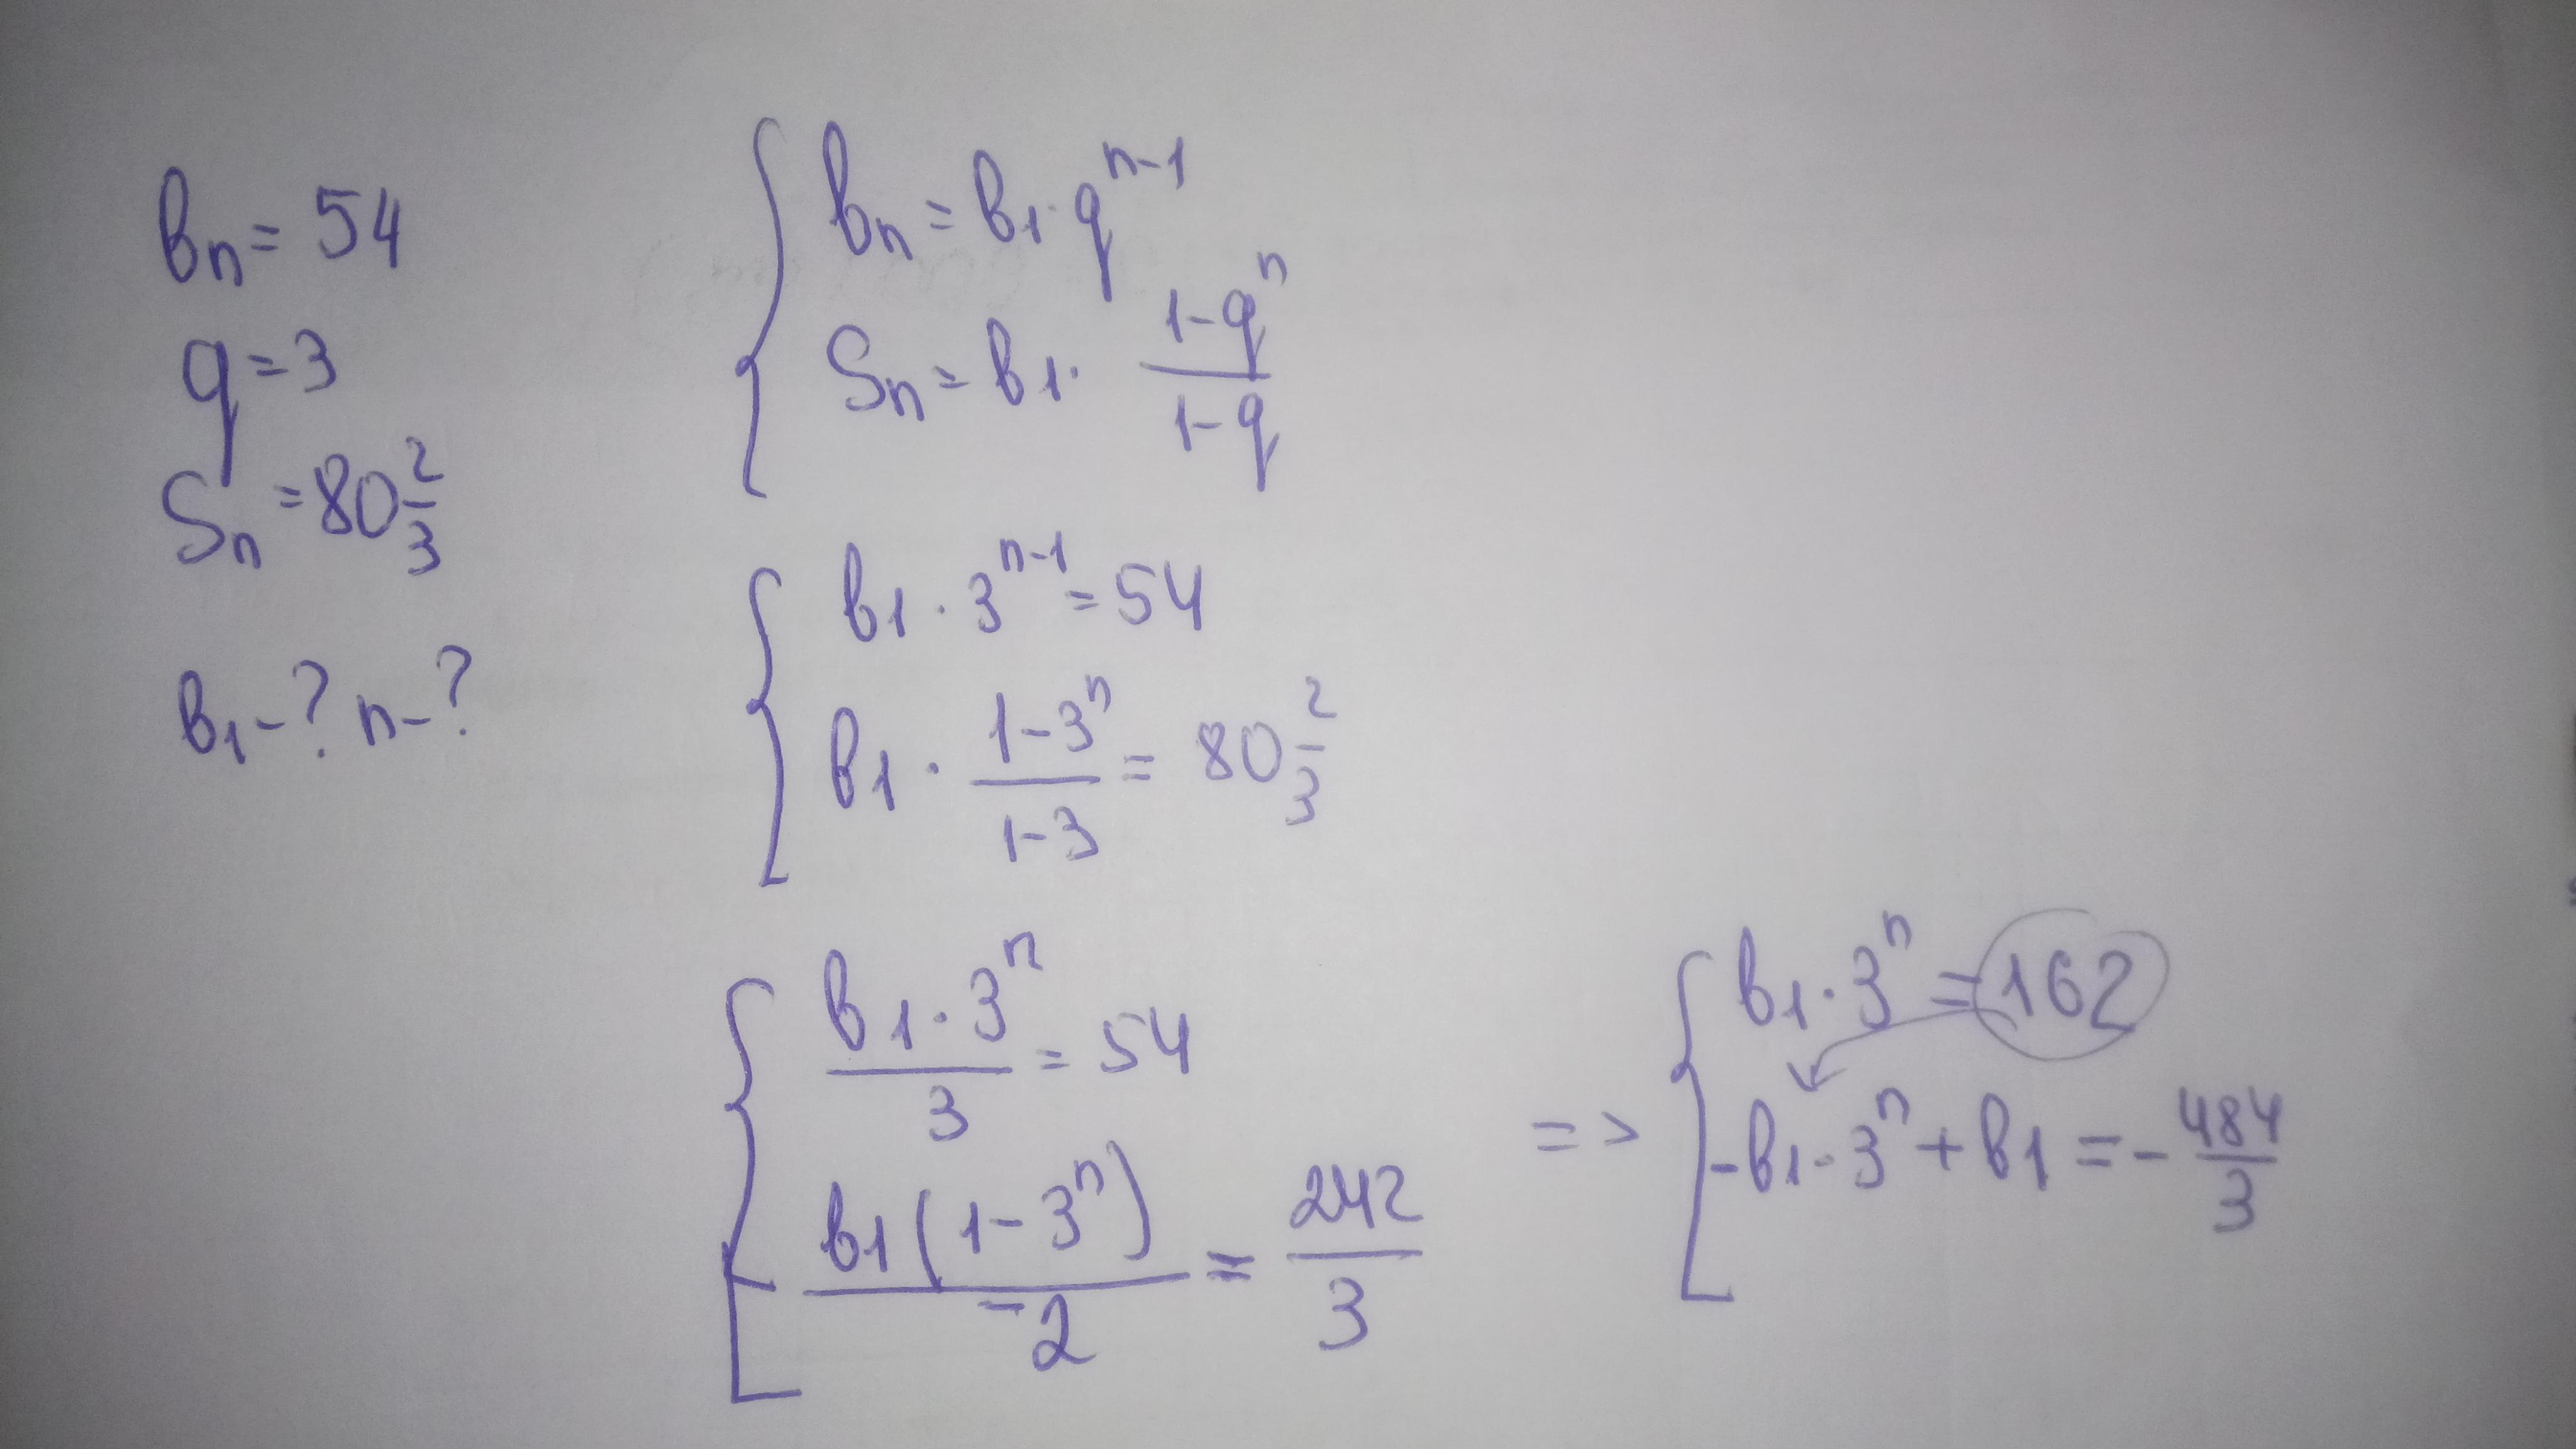 вn = 54
q = 3
Sn = 80 2/3
в1 - ? n - ?
{ вn = в1 · q^(n-1)
Sn = в1 · (1-q^n)/(1-q)
{ в1 · 3^(n-1) = 54
в1 · (1-3^n)/(1-3) = 80 2/3
{ (в1 · 3^n)/3 = 54
(в1(1-3^n))/(-2) = 242/3
=> { в1 · 3^n = 162
-в1 · 3^n + в1 = - 484/3